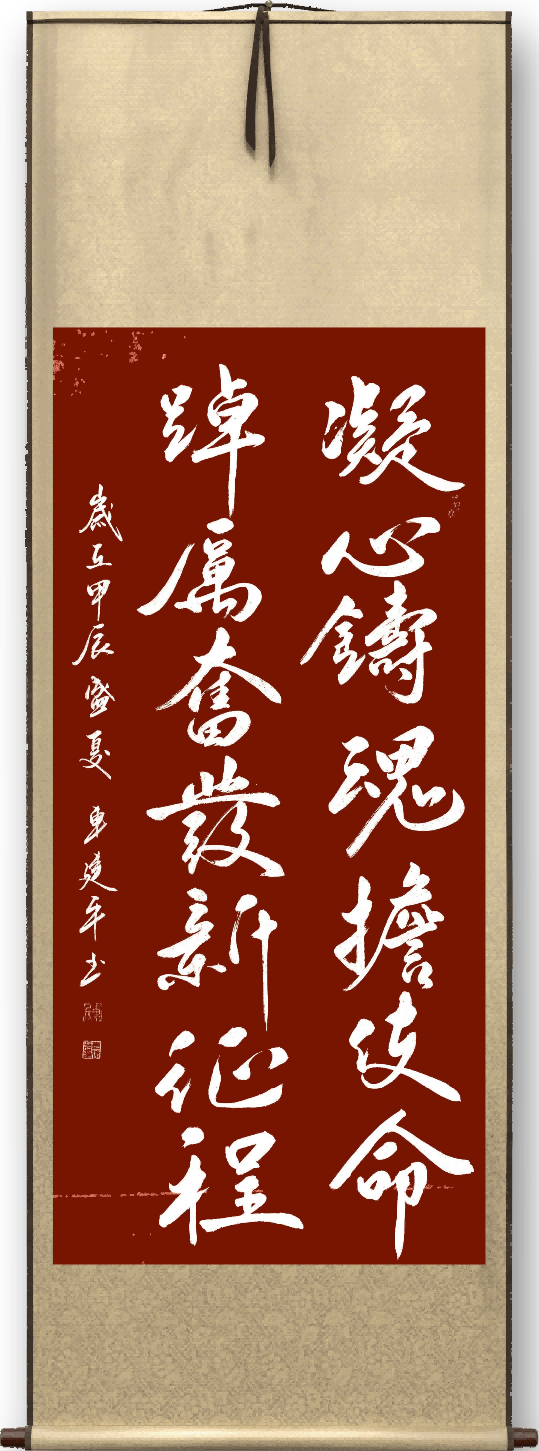 凝心鑄魂擔使命
踔厲奮發新征程
歲在甲辰盛夏 車建平书